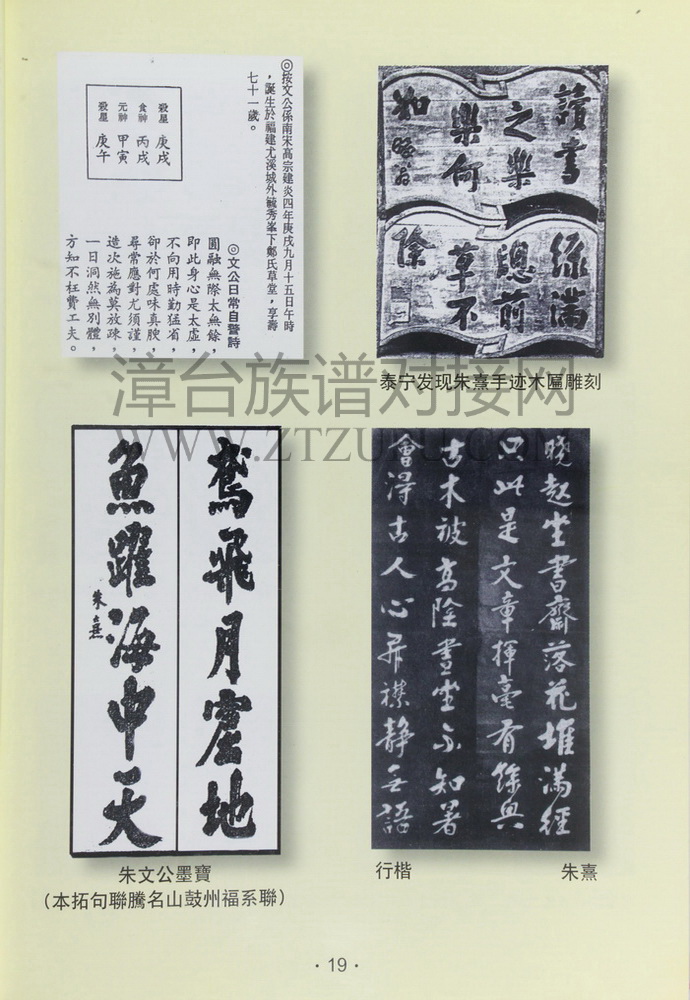 ◎按文公係南宋高宗建炎四年庚戌九月十五日午時
，誕生於福建尤溪城外毓秀峯下鄭氏草堂，享壽
七十一歲。
殺星 庚戌
食神 丙戌
元神 甲寅
殺星 庚午
◎文公日常自警詩
圓融無際太無餘，
即此身心是太虛，
不向用時勤猛省，
卻於何處味真腴，
尋常應對尤須謹，
造次施為莫放疎，
一日洞然無別體，
方知不枉費工夫。
讀書
之樂
樂何
如
晦翁
綠滿
窓前
草不
除
泰宁发现朱熹手迹木匾雕刻
漳台族谱对接网
WWW.ZTZUPU.COM
鳶飛月窟地
魚躍海中天
朱熹
朱文公墨寶
（本拓句聯騰名山鼓州福系聯）
晚起坐書齋落花堆滿徑
只此是文章揮毫有餘興
古木被高陰晝坐不知暑
會得古人心開襟静無語
行楷
朱熹
·19·